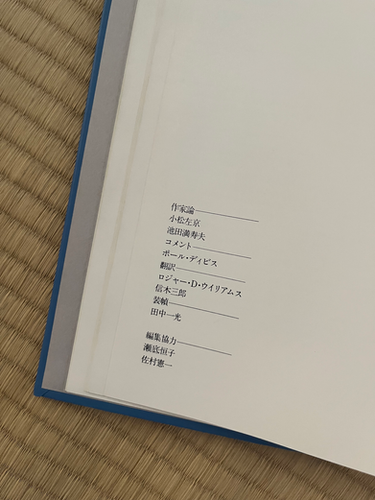 作家論
小松左京
池田満寿夫
コメント
ポール・デイビス
翻訳
ロジャー・D・ウイリアムス
信木三郎
装幀
田中一光
編集協力
瀬底恒子
佐村憲一